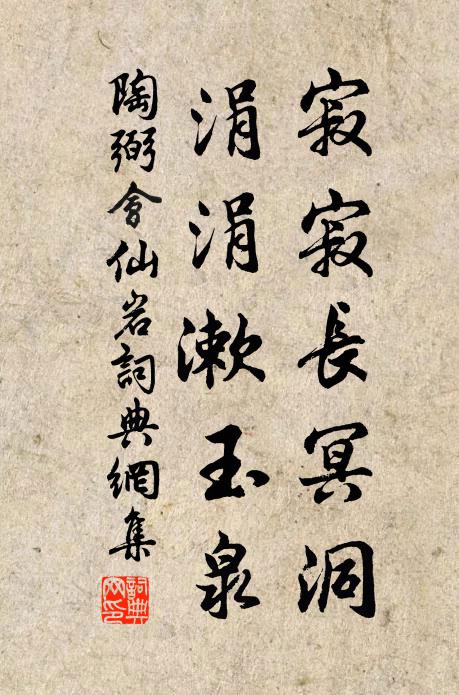 寂寂長冥洞
涓涓漱玉泉
陶弼會仙岩詞典網集
詞典網印